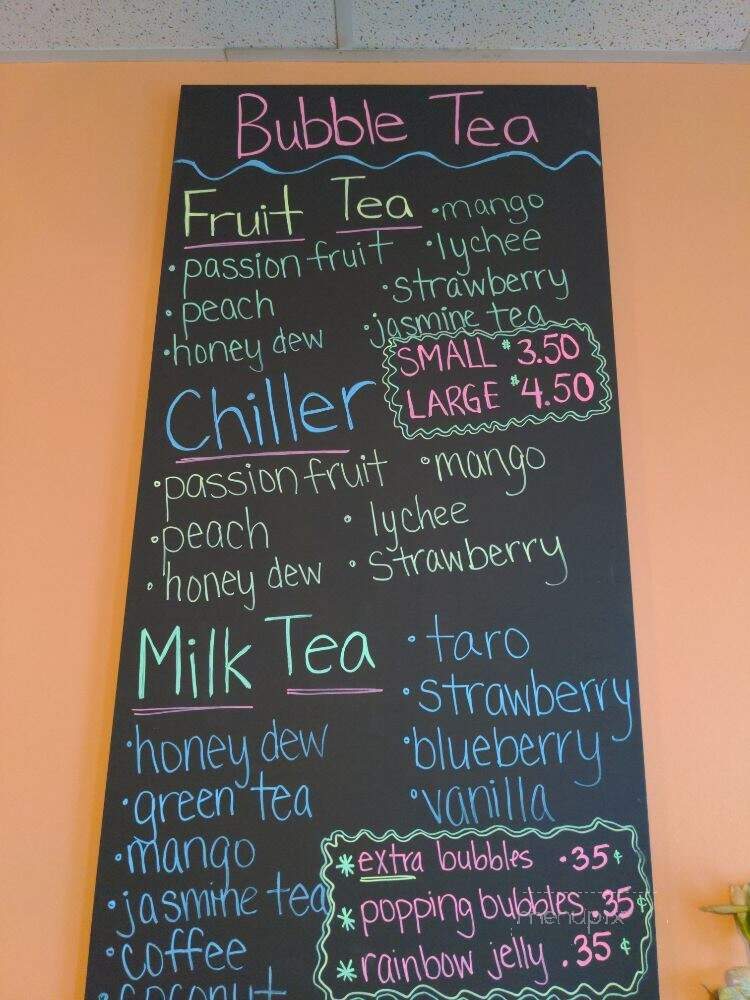 Bubble Tea
Fruit Tea
• passion fruit
• peach
• honey dew
• mango
• lychee
• strawberry
• jasmine tea
SMALL $3.50
LARGE $4.50
Chiller
• passion fruit
• peach
• honey dew
• mango
• lychee
• strawberry
Milk Tea
• honey dew
• green tea
• mango
• jasmine tea
• coffee
• coconut
• taro
• strawberry
• blueberry
• vanilla
* extra bubbles .35¢
* popping bubbles .35¢
* rainbow jelly .35¢
menupix